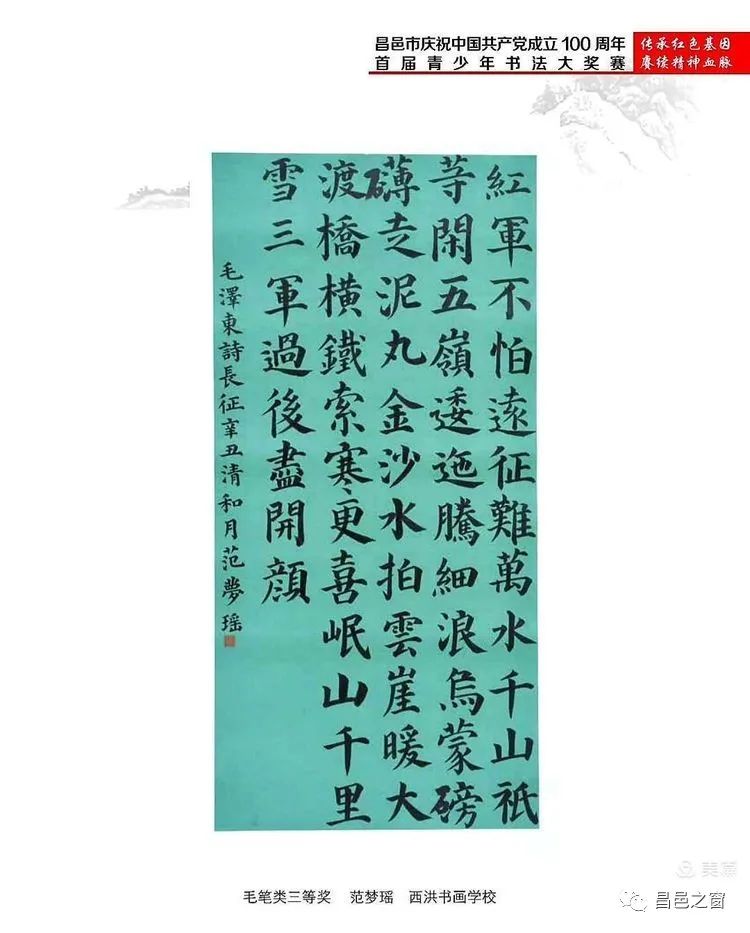 昌邑市庆祝中国共产党成立100周年
首届青少年书法大奖赛
传承红色基因
赓续精神血脉
紅軍不怕遠征難萬水千山祇
等閑五嶺逶迤騰細浪烏蒙磅
礴走泥丸金沙水拍雲崖暖大
渡橋橫鐵索寒更喜岷山千里
雪三軍過後盡開顔
毛澤東詩長征辛丑清和月范夢瑤
美篇
毛笔类三等奖 范梦瑶 西洪书画学校
昌邑之窗